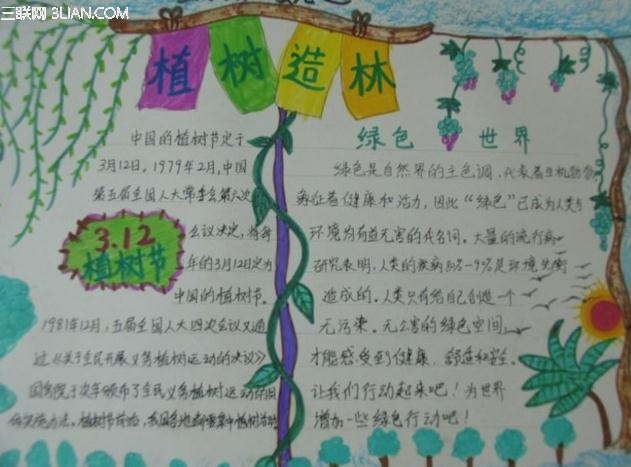 三联网 3LIAN.COM
植树造林
中国的植树节定于
3月12日。1979年2月,中国
第五届全国人大常委会第六次
会议决定,将每
年的3月12日定为
中国的植树节。
3.12
植树节
1981年12月,五届全国人大四次会议又通
过《关于全民开展义务植树运动的决议》
国务院于次年颁布了全民义务植树运动的
绿色世界
绿色是自然界的主色调,代表着生机勃勃
象征着健康和活力,因此“绿色”已成为人类与
环境为有益无害的代名词。大量的流行病
研究表明,人类的疾病 是环境失衡
造成的。人类只有给自己创造一个
无污染。无公害的绿色空间,
才能感受到健康、舒适和安全。
让我们行动起来吧!为世界
增加一些绿色行动吧!